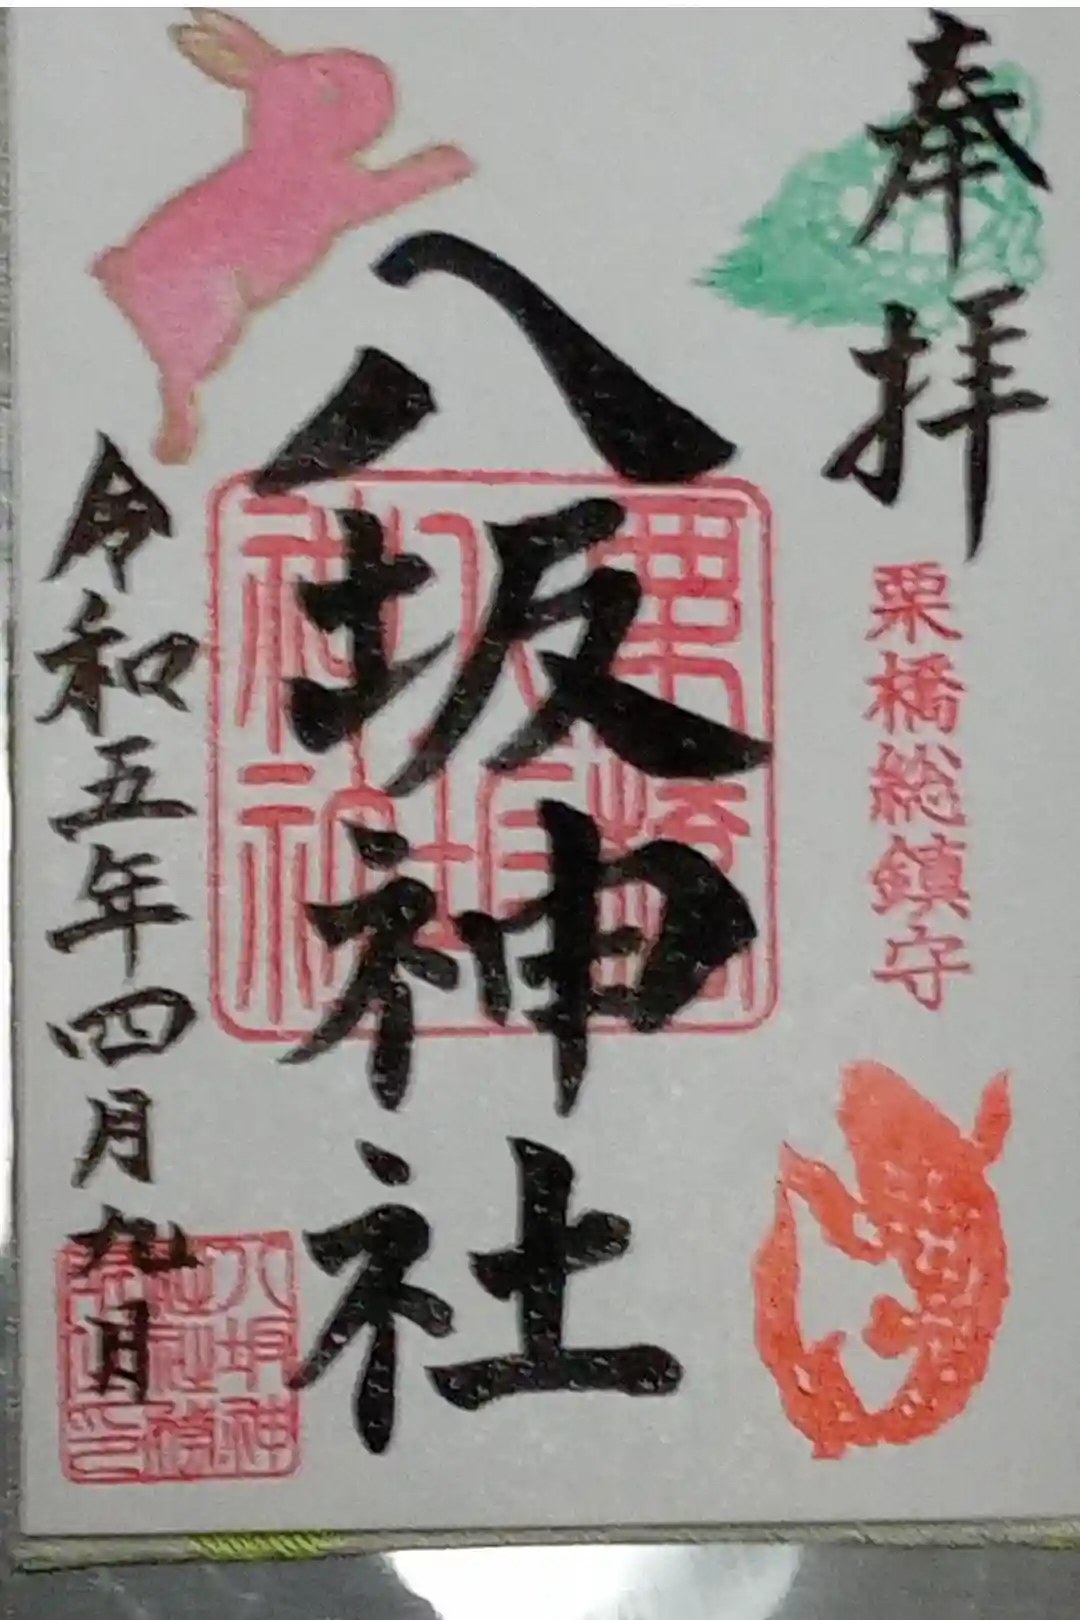 奉拝
栗橋総鎮守
八坂神社
栗橋
八坂
神社
令和五年四月九日
八坂神
社社務